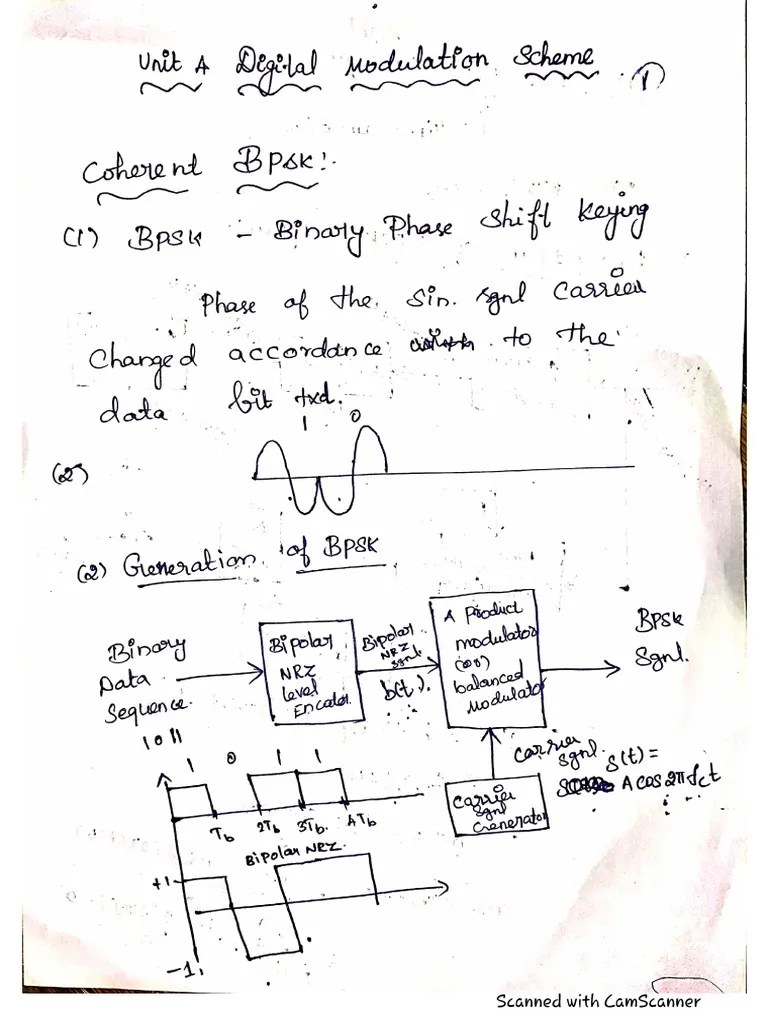 Unit 4 Digital Modulation Scheme
1
Coherent BPSK:-
(1) BPSK - Binary Phase Shift Keying
Phase of the sin. sgnl carrier
changed accordance to the
data bit txd.
1 0
(2)
(2) Generation of BPSK
Binary
Data
Sequence.
1011
Bipolar
NRZ
level
Encoder.
Bipolar
NRZ
sgnl
b(t).
A Product
modulator
(or)
balanced
Modulator
BPSK
Sgnl.
Carrier
sgnl.
S(t) =
A cos 2πfct
Carrier
sgnl
Generator
1 0 1 1
Tb 2Tb 3Tb. 4Tb
Bipolar NRZ.
+1
-1
Scanned with CamScanner